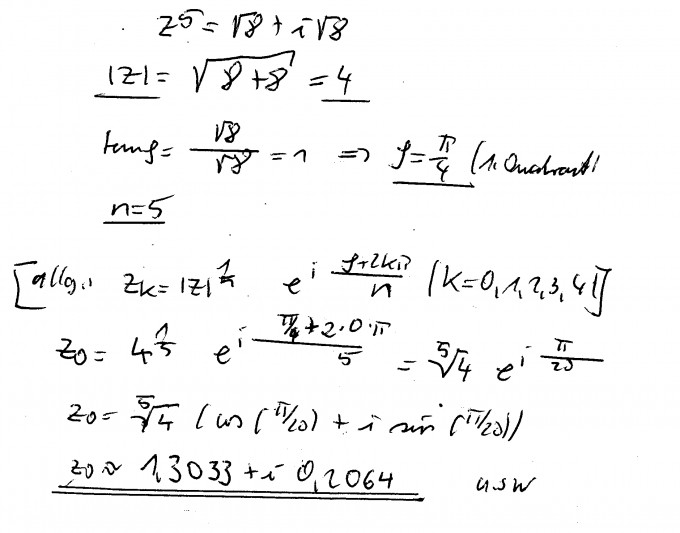 z⁵ = √8 + i√8
|z| = √(8+8) = 4
tan φ = √8/√8 = 1 ⇒ φ = π/4 (1. Quadrant)
n=5
[allg.: z_k = |z|^(1/n) e^(i (φ+2kπ)/n) (k=0,1,2,3,4)]
z₀ = 4^(1/5) e^(i (π/4+2·0·π)/5) = ⁵√4 e^(i π/20)
z₀ = ⁵√4 (cos(π/20) + i sin(π/20))
z₀ ≈ 1,3033 + i 0,2064 usw